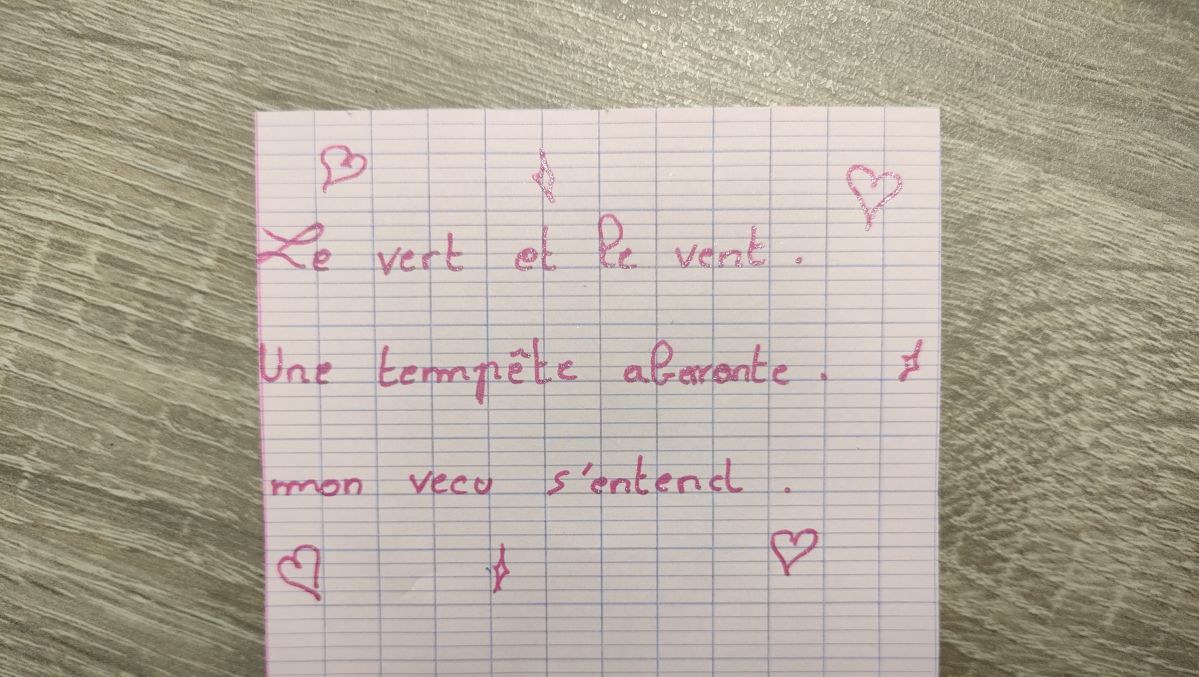 Le vert et le vent.
Une tempête aberante.
mon vecu s'entend.